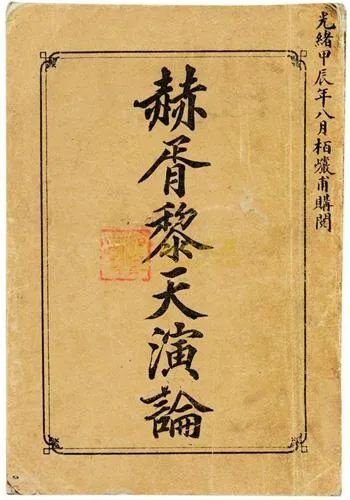 光緒甲辰年八月栢巖甫購閱
赫胥黎天演論